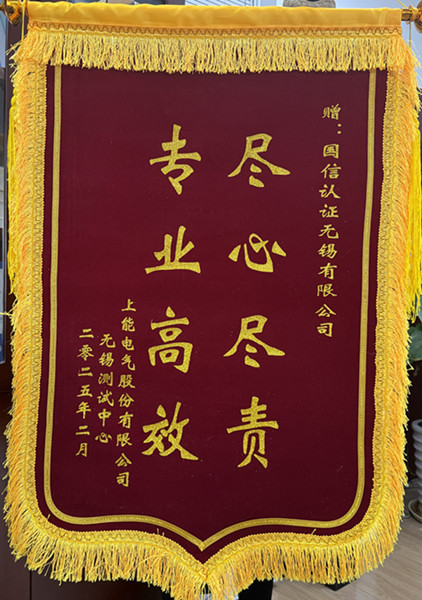 赠：国信认证无锡有限公司
尽心尽责
专业高效
上能电气股份有限公司
无锡测试中心
二零二五年二月